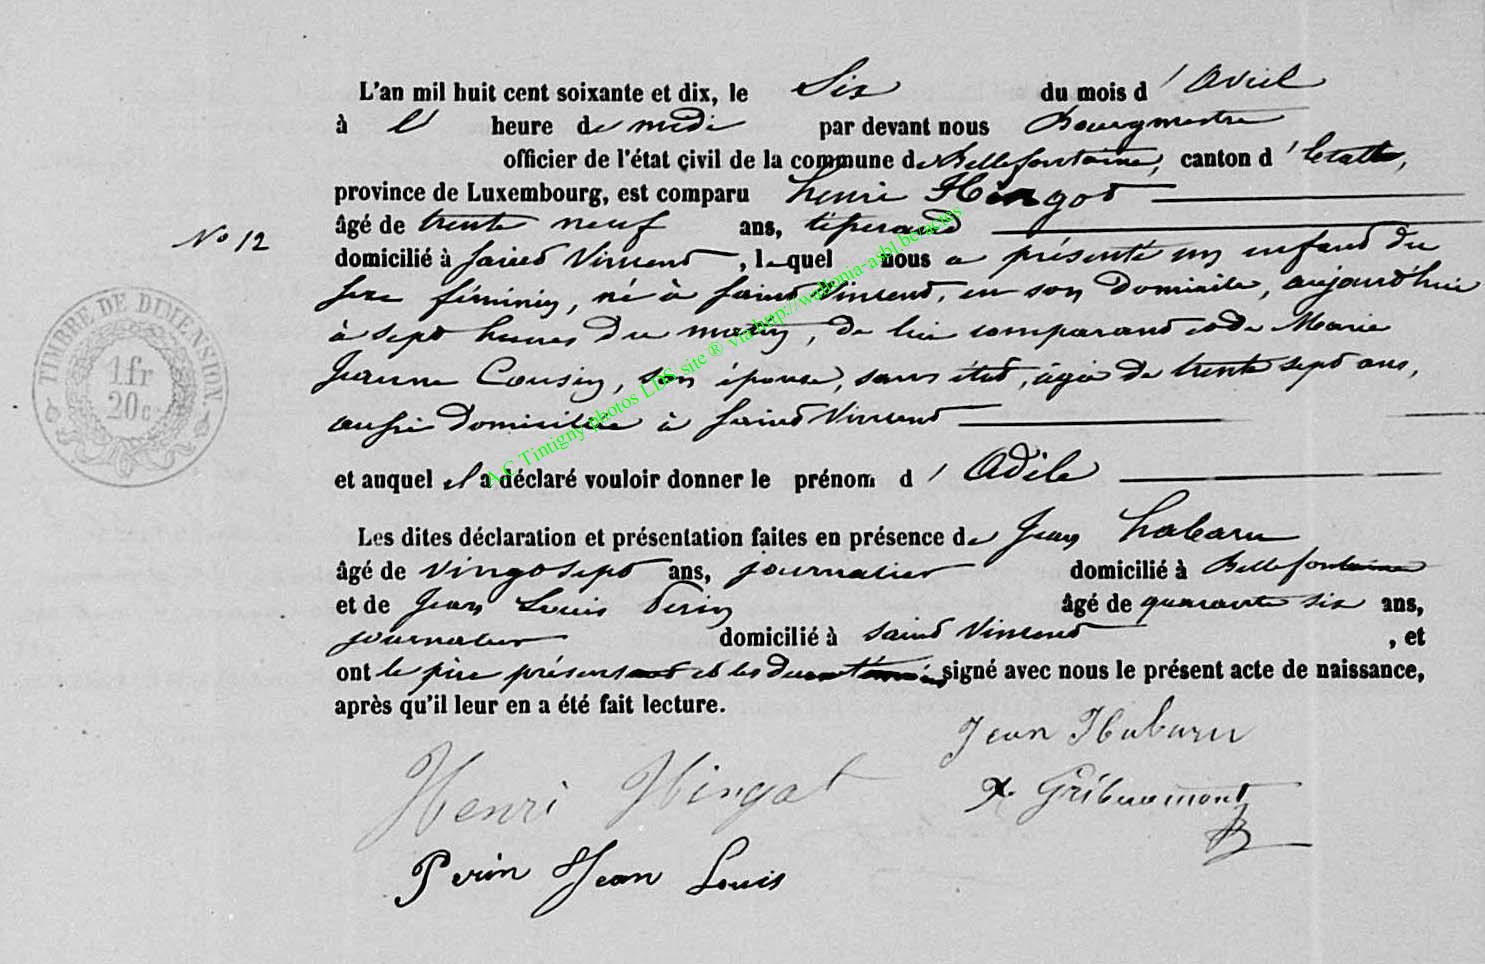 L'an mil huit cent soixante et dix, le Six du mois d'Avril
à l' heure de midi par devant nous Bourgmestre
officier de l'état civil de la commune de Bellefontaine, canton d'Etalle,
province de Luxembourg, est comparu henri Hingot
N° 12
âgé de trente neuf ans, tiserand
domicilié à Saint Vincent, lequel nous a présenté un enfant du
sexe féminin, né à Saint Vincent, en son domicile, aujourd'hui
à sept heures du matin, de lui comparant et de Marie
Jeanne Cousin, son épouse, sans état, âgée de trente sept ans,
aussi domiciliée à Saint Vincent
TIMBRE DE DIMENSION.
1 fr
20 c.
et auquel il a déclaré vouloir donner le prénom d'Adile
Les dites déclaration et présentation faites en présence de Jean habaru
âgé de vingt sept ans, journalier domicilié à Bellefontaine
et de Jean Louis Perin âgé de quarante six ans,
journalier domicilié à Saint Vincent, et
ont le père présent et les deux témoins signé avec nous le présent acte de naissance,
après qu'il leur en a été fait lecture.
Jean Habaru
Henri Hingot
X. Gribaumont
Perin Jean Louis
A.C Tintigny photos LDS site ® via http://wallonia-asbl.be/actes